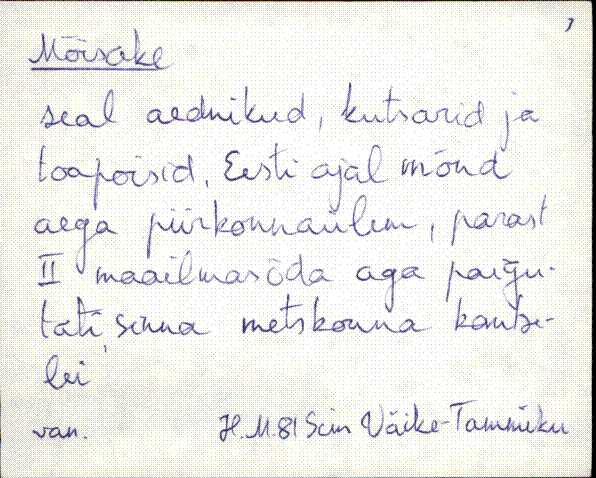 Mõisake
seal aednikud, kutsarid ja
toapoisid, Eesti ajal mõnd
aega piirkonnaülem, pärast
II maailmasõda aga paigu-
tati sinna metskonna kantse-
lei
van. H. M. 81 Väike-Tammiku